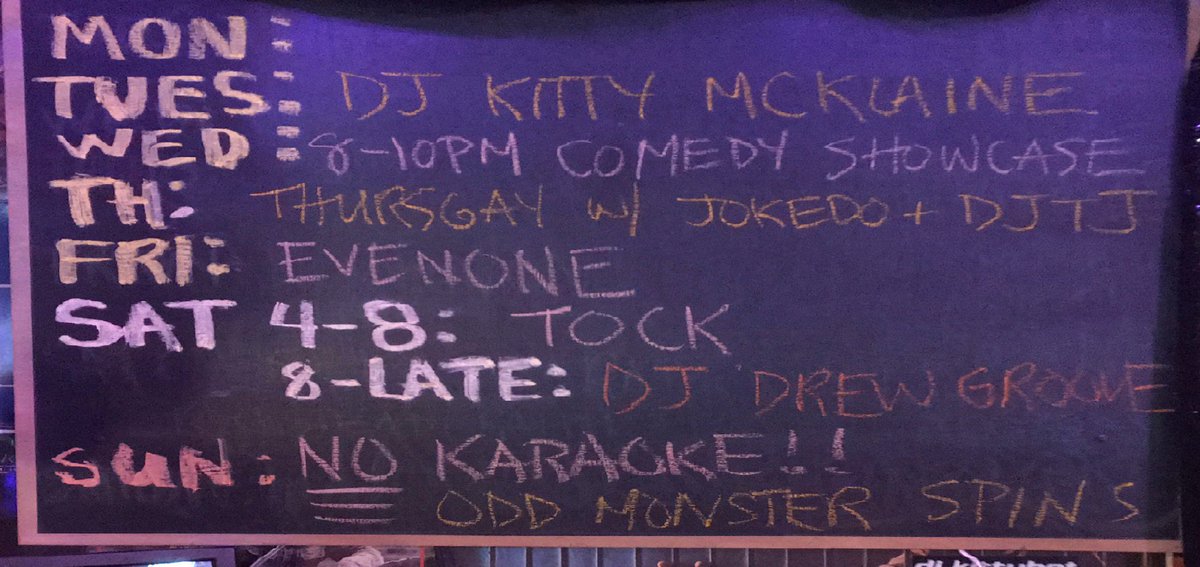 MON:
TUES: DJ KITTY MCKLAINE
WED: 8-10PM COMEDY SHOWCASE
TH: THURSGAY W/ JOKEDO + DJ TJ
FRI: EVENONE
SAT 4-8: TOCK
8-LATE: DJ DREW GROOVE
SUN: NO KARAOKE!!
ODD MONSTER SPINS